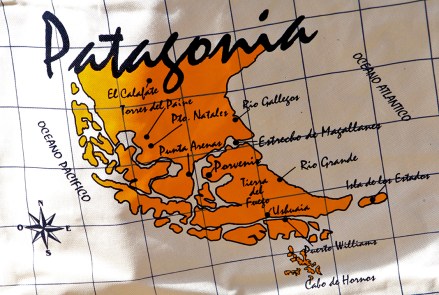 Patagonia
El Calafate
Torres del Paine
Pto. Natales
Rio Gallegos
OCEANO ATLANTICO
OCEANO PACIFICO
Punta Arenas
Estrecho de Magallanes
Porvenir
Rio Grande
Tierra
del
Fuego
Isla de los Estados
Ushuaia
N
O
E
S
Puerto Williams
Cabo de Hornos